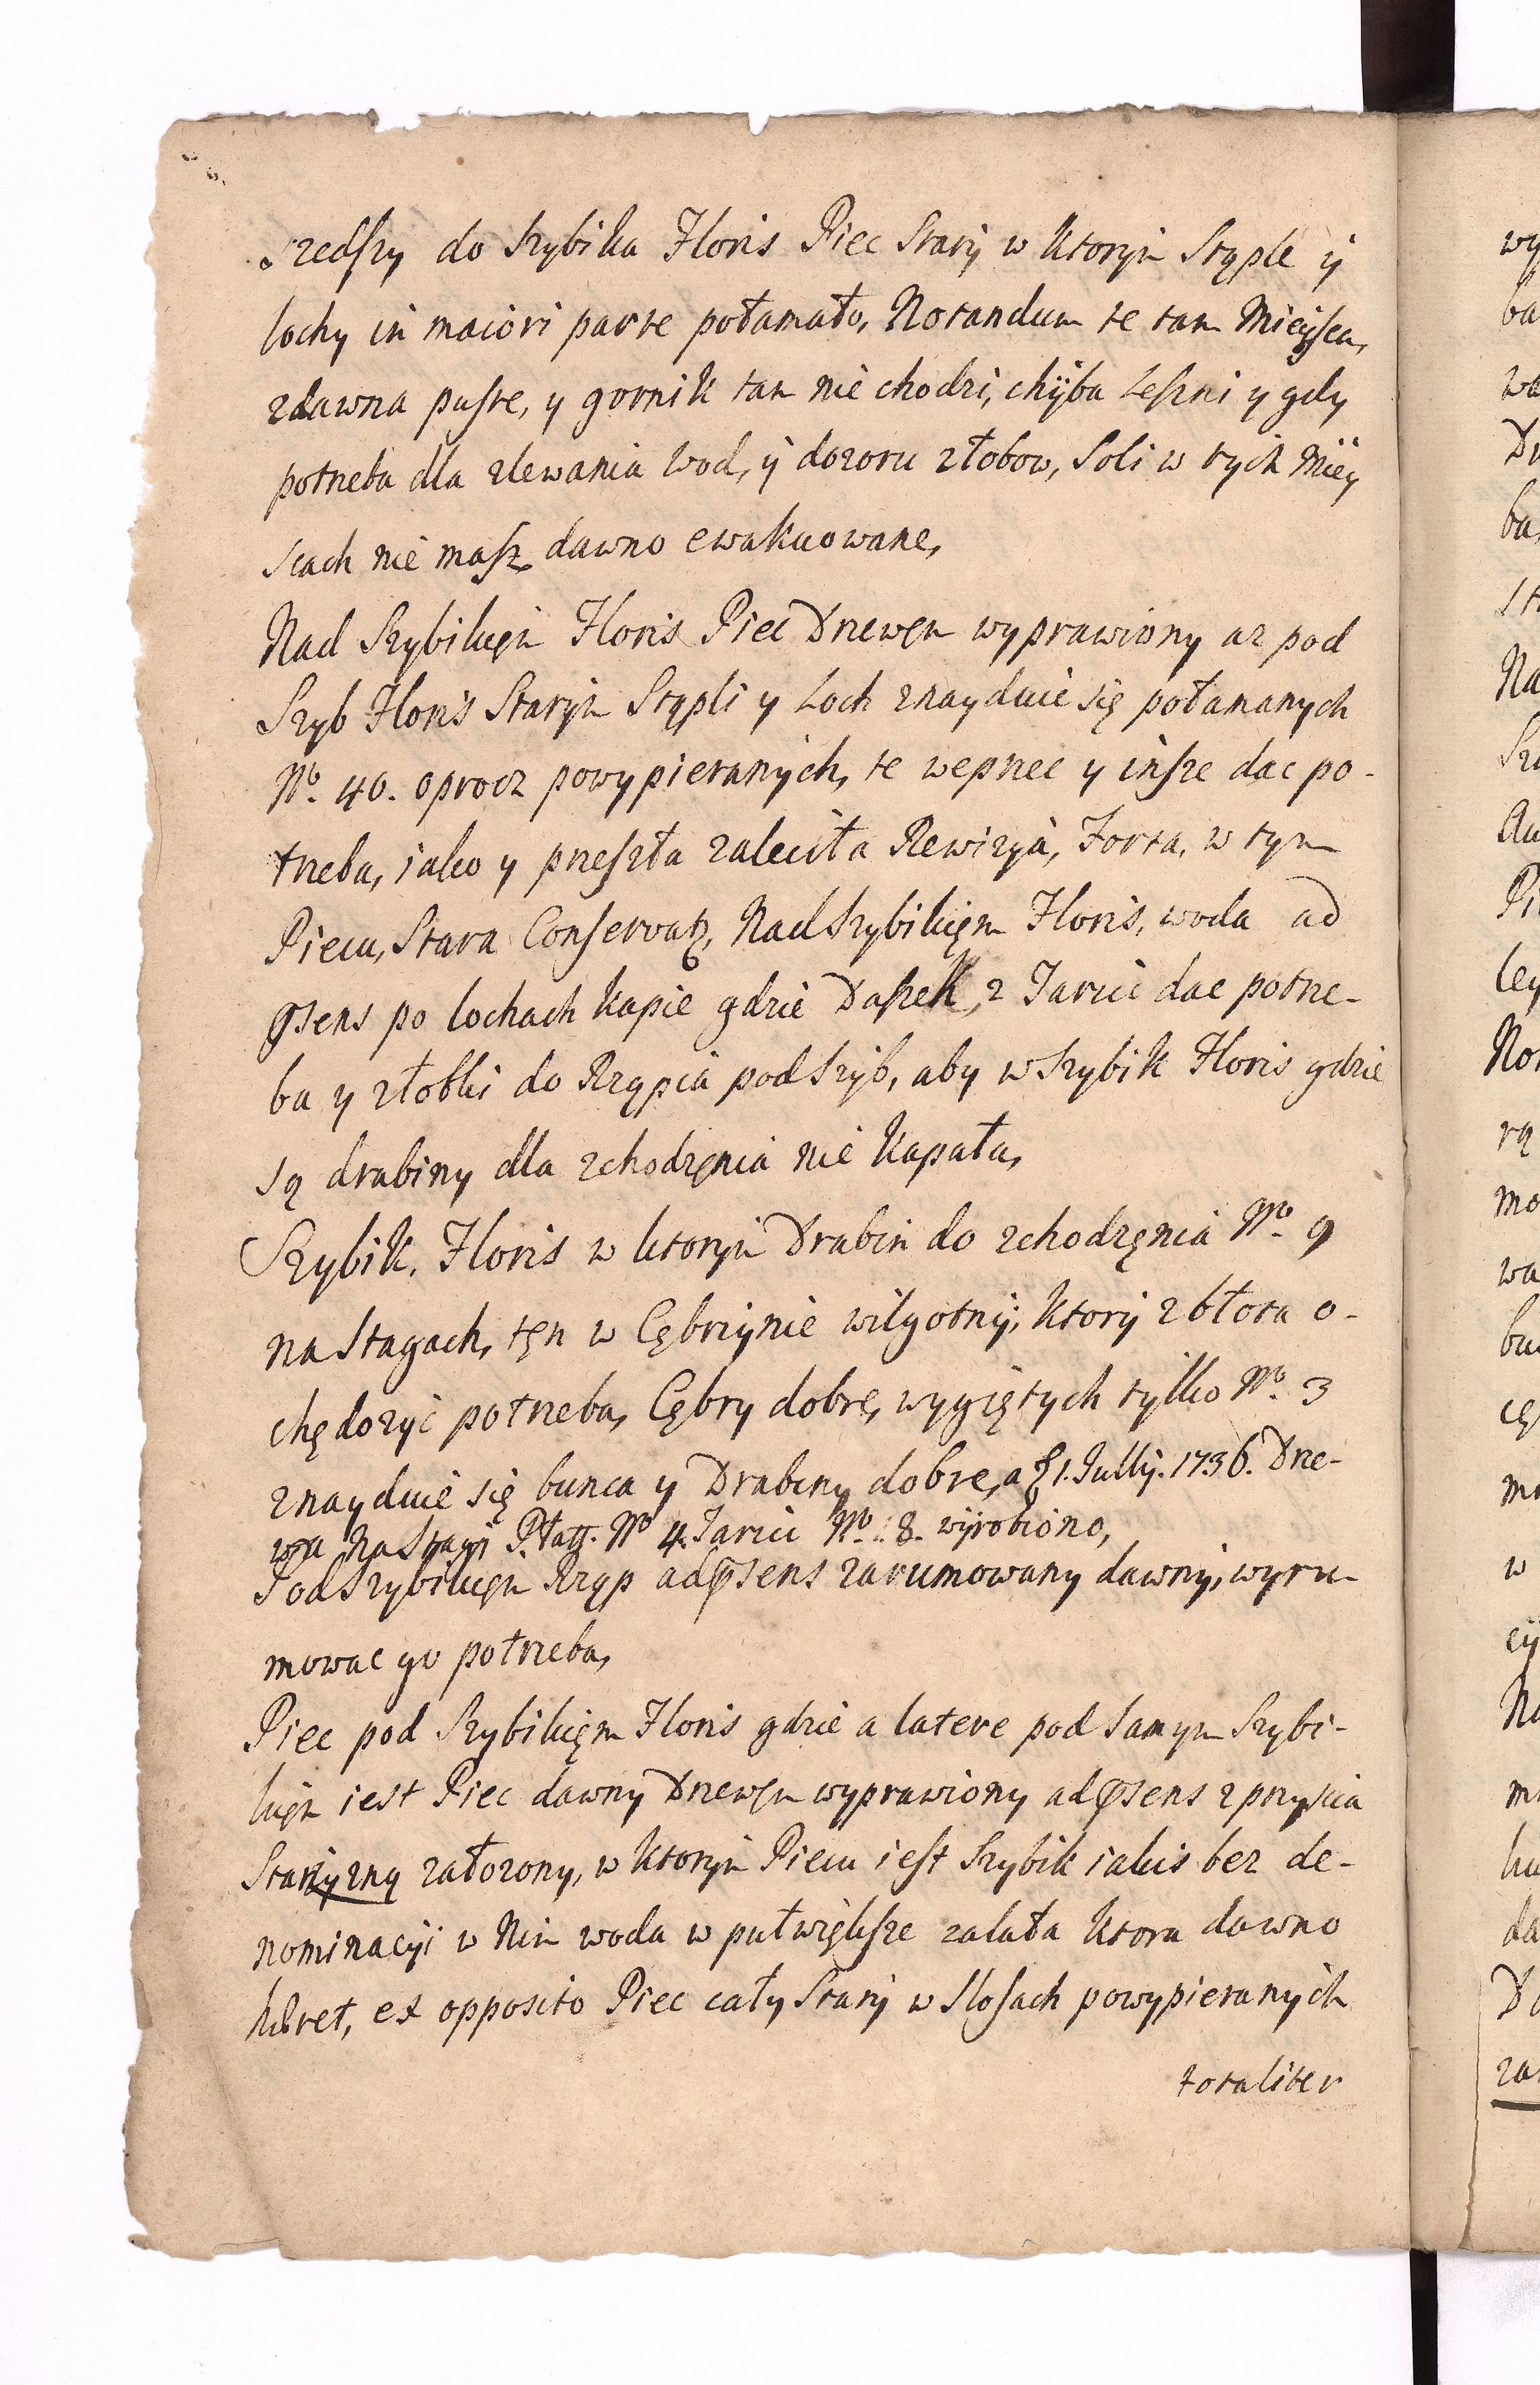 szedszy do Szybika Floris Piec Stary w ktorym Stęple y
lochy in maiori parte połamało, Notandum te tam Mieysca,
zdawna puste, y gornik tam nie chodzi, chyba Leszni y gdy
potrzeba dla zlewania Wod, y dozoru złobow, Soli w tych Miey
scach nie masz dawno ewakuowane,
Nad Szybikięm Floris Piec Drzewęm wyprawiony az pod
Szyb Floris Starym Stępli y Loch znayduie się połamanych
No. 40. oprocz powypieranych, te weprzec y insze dac po-
trzeba, iako y przeszła zaleciła Rewizya, Forta, w tym
Piecu, Stara Conservatą, Nad Szybikięm Floris, woda ad
psens po lochach kapie gdzie Daszek z Tarcic dac potrze-
ba y złobki do Rząpia pod Szyb, aby w Szybik Floris gdzie
są drabiny dla zchodzęnia nie kapała,
Szybik, Floris w ktorym Drabin do zchodzęnia No. 9
na Stagach, tęn w Cębrzynie wilgotny, ktory z błota o-
chędozyc potrzeba, Cębry dobre, wygiętych tylko No. 3
znayduie się bunca y Drabiny dobre, a 1. Julij. 1736. Drze-
wa na Stagi Płatt. No 4. Tarcic No. 8. wyrobiono,
Pod Szybikięm Rząp ad psens zarumowany dawny, wyru-
mowac go potrzeba,
Piec pod Szybikięm Floris gdzie a latere pod Samym Szybi-
kięm iest Piec dawny Drzewęm wyprawiony ad psens z przyscia
Starzyzną załozony, w ktorym Piecu iest Szybik iakis bez de-
nominacyi w Nim woda w puł większe zalała ktora dawno
hæret, ex opposito Piec cały Stary w Slosach powypieranych
totaliter